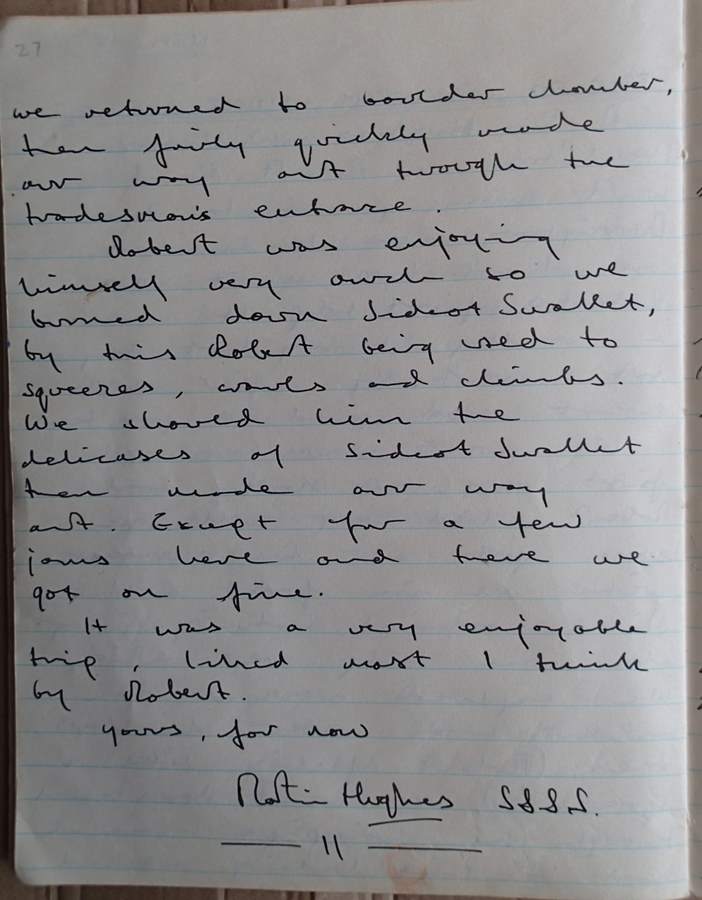 27
we returned to boulder chamber,
then fairly quickly made
our way out through the
tradesman's entrance.
Robert was enjoying
himself very much so we
turned down Sidcot Swallet,
by this Robert being used to
squeezes, crawls and climbs.
We showed him the
delicases of Sidcot Swallet
then made our way
out. Except for a few
jams here and there we
got on fine.
It was a very enjoyable
trip, liked most I think
by Robert.
yours, for now
Martin Hughes S.S.S.S.
11